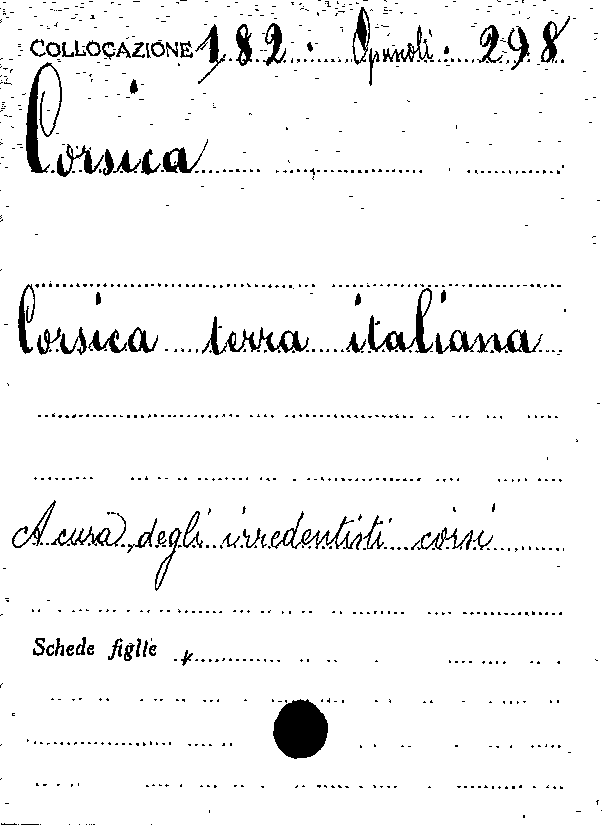 COLLOCAZIONE 182. Opuscoli. 298
Corsica
Corsica terra italiana
A cura degli irredentisti corsi
Schede figlie